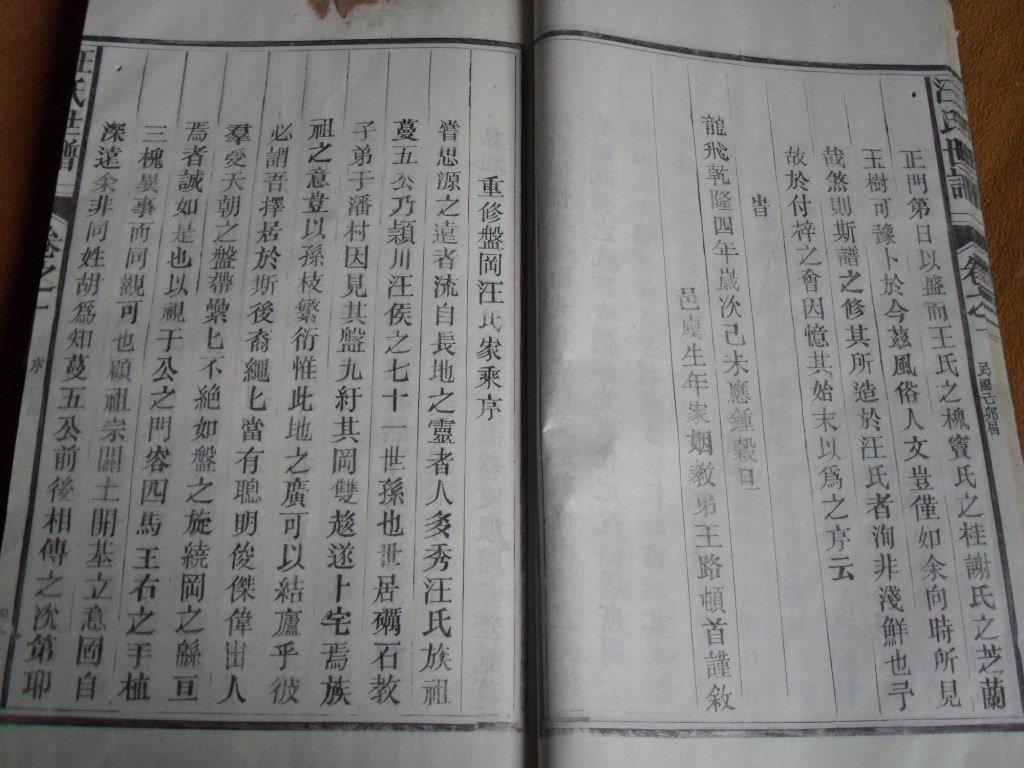 汪氏世譜
卷之一
正門第日以盤而王氏之槐竇氏之桂謝氏之芝蘭
王樹可豫卜於今茲風俗人文豈僅如余向時所見
哉然則斯譜之修其所造於汪氏者洵非淺鮮也予
故於付梓之會因憶其始末以為之序云
旹
龍飛乾隆四年歲次己未應鍾穀旦
邑庠生年家姻教弟王路頓首謹敘
重修盤岡汪氏家乘序
嘗思源之遠者流自長地之靈者人多秀汪氏族祖
蔓五公乃潁川汪侯之七十一世孫也世居礪石教
子弟于潘村因見其盤九紆其岡雙趂遂卜宅焉族
祖之意豈以孫枝繁衍惟此地之廣可以結廬乎彼
必謂吾擇居於斯後裔繩匕當有聰明俊傑偉出人
羣受天朝之盤帶纍匕不絕如盤之旋繞岡之緜亘
焉者誠如是也以視于公之門容四馬王右之手植
三槐異事而同觀可也顧祖宗闢土開基立意固自
深遠余非同姓胡為知蔓五公前後相傳之次第耶
汪氏世譜
卷之一
序